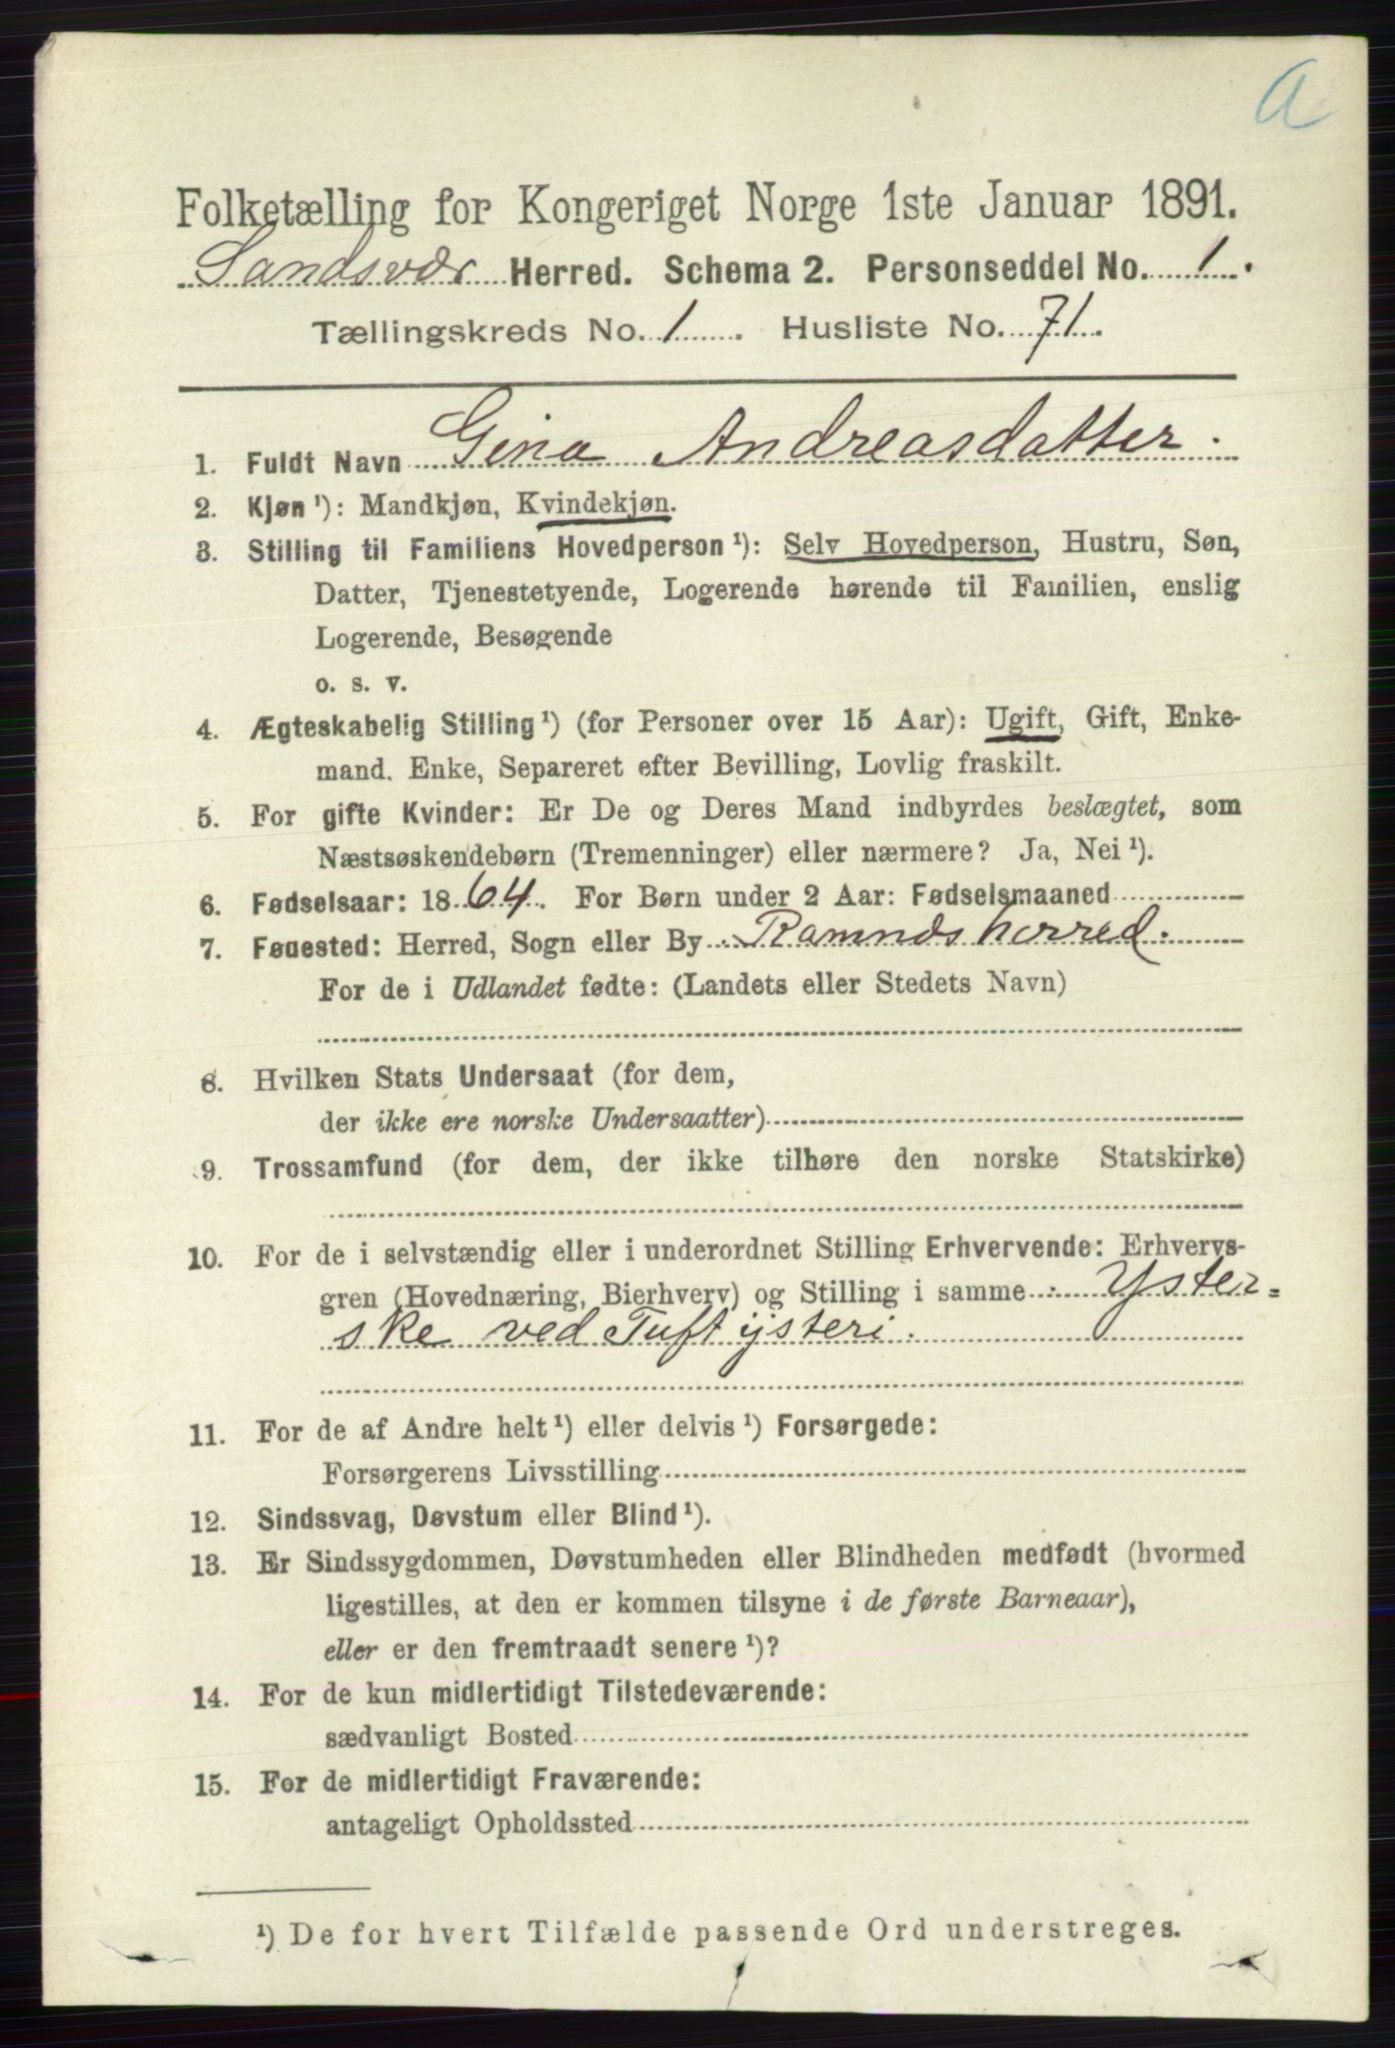 a
Folketælling for Kongeriget Norge 1ste Januar 1891.
Sandsvær Herred. Schema 2. Personseddel No. 1.
Tællingskreds No. 1. Husliste No. 71.
1. Fuldt Navn Gina Andreasdatter.
2. Kjøn ¹): Mandkjøn, Kvindekjøn.
3. Stilling til Familiens Hovedperson ¹): Selv Hovedperson, Hustru, Søn,
Datter, Tjenestetyende, Logerende hørende til Familien, enslig
Logerende, Besøgende
o. s. v.
4. Ægteskabelig Stilling ¹) (for Personer over 15 Aar): Ugift, Gift, Enke-
mand. Enke, Separeret efter Bevilling, Lovlig fraskilt.
5. For gifte Kvinder: Er De og Deres Mand indbyrdes beslægtet, som
Næstsøskendebørn (Tremenninger) eller nærmere? Ja, Nei ¹).
6. Fødselsaar: 1864. For Børn under 2 Aar: Fødselsmaaned
7. Føuested: Herred, Sogn eller By Ramnds herred.
For de i Udlandet fødte: (Landets eller Stedets Navn)
8. Hvilken Stats Undersaat (for dem,
der ikke ere norske Undersaatter)
9. Trossamfund (for dem, der ikke tilhøre den norske Statskirke)
10. For de i selvstændig eller i underordnet Stilling Erhvervende: Erhvervs-
gren (Hovednæring, Bierhverv) og Stilling i samme Yster=
ske ved Tuft ysteri.
11. For de af Andre helt ¹) eller delvis ¹) Forsørgede:
Forsørgerens Livsstilling
12. Sindssvag, Døvstum eller Blind ¹).
13. Er Sindssygdommen, Døvstumheden eller Blindheden medfødt (hvormed
ligestilles, at den er kommen tilsyne i de første Barneaar),
eller er den fremtraadt senere ¹)?
14. For de kun midlertidigt Tilstedeværende:
sædvanligt Bosted
15. For de midlertidigt Fraværende:
antageligt Opholdssted
¹) De for hvert Tilfælde passende Ord understreges.